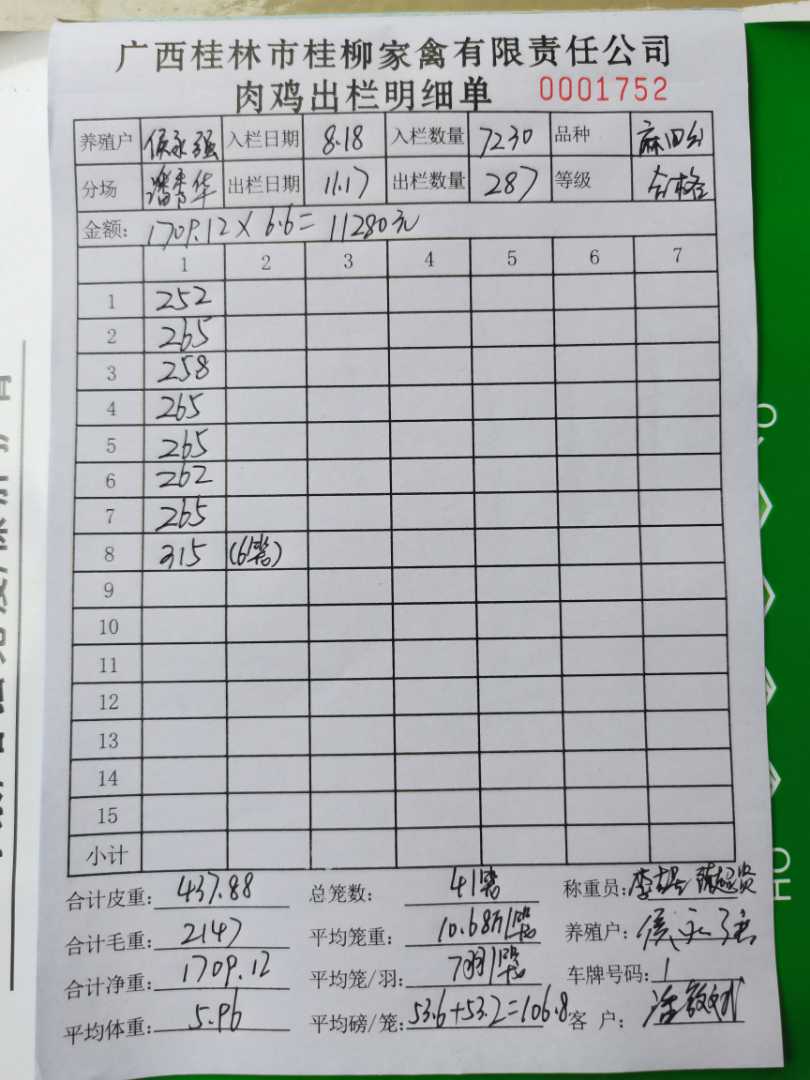 广西桂林市桂柳家禽有限责任公司
肉鸡出栏明细单 0001752
养殖户 侯永强 入栏日期 8.18 入栏数量 7230 品种
分场 潘秀华 出栏日期 11.17 出栏数量 287 等级 合格
金额: 1709.12×6.6=11280元
1 2 3 4 5 6 7
1 252
2 265
3 258
4 265
5 265
6 262
7 265
8 315 (6笼)
9
10
11
12
13
14
15
小计
合计皮重: 437.88 总笼数: 41笼 称重员:
合计毛重: 2147 平均笼重: 10.68斤/笼 养殖户: 侯永强
合计净重: 1709.12 平均笼/羽: 7羽/笼 车牌号码: /
平均体重: 5.96 平均磅/笼: 53.6+53.2=106.8 客户: